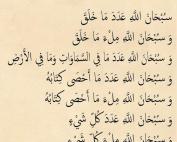 سُبْحَانَ اللَّهِ عَدَدَ مَا خَلَقَ
وَ سُبْحَانَ اللَّهِ مِلْءَ مَا خَلَقَ
وَ سُبْحَانَ اللَّهِ عَدَدَ مَا فِي السَّمَاوَاتِ وَمَا فِي الْأَرْضِ
وَ سُبْحَانَ اللَّهِ عَدَدَ مَا أَحْصَى كِتَابُهُ
وَ سُبْحَانَ اللَّهِ مِلْءَ مَا أَحْصَى كِتَابُهُ
وَ سُبْحَانَ اللَّهِ عَدَدَ كُلِّ شَيْءٍ
وَ سُبْحَانَ اللَّهِ مِلْءَ كُلِّ شَيْءٍ